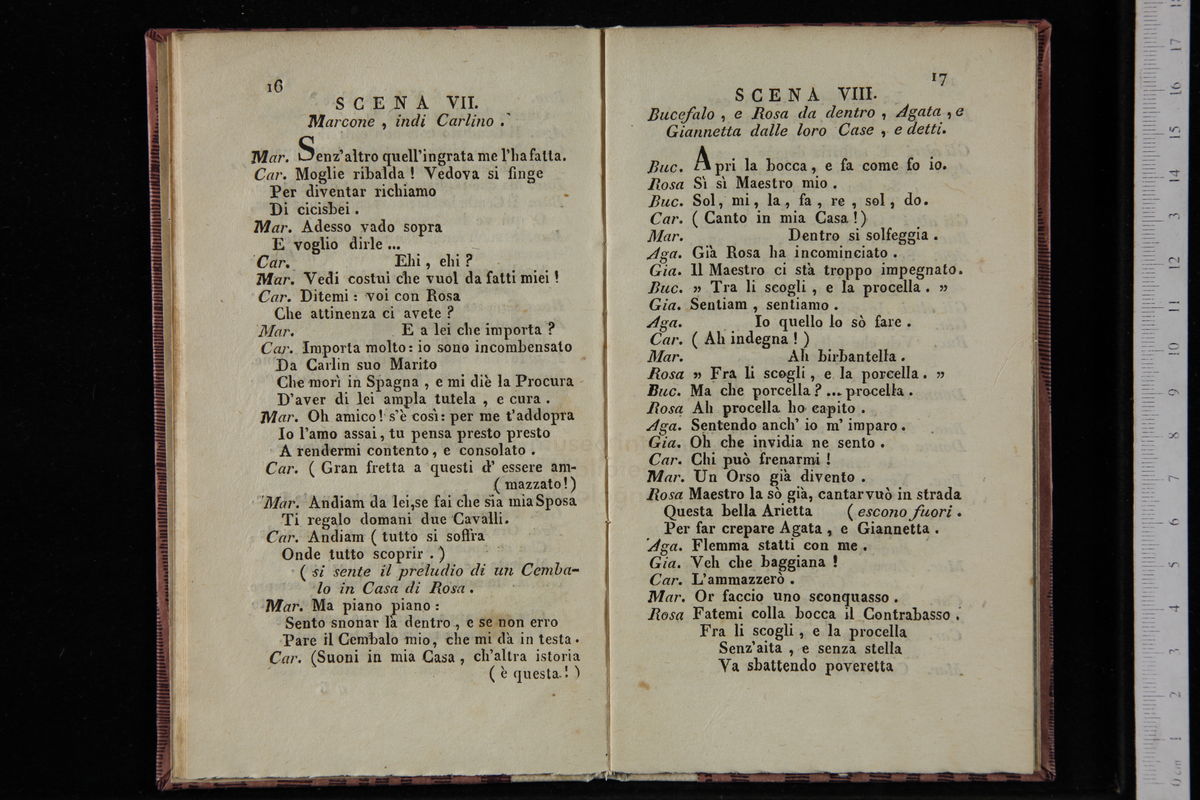 16
SCENA VII.
Marcone , indi Carlino .
Mar. Senz'altro quell'ingrata me l'ha fatta.
Car. Moglie ribalda ! Vedova si finge
Per diventar richiamo
Di cicisbei .
Mar. Adesso vado sopra
E voglio dirle ...
Car. Ehi , ehi ?
Mar. Vedi costui che vuol da fatti miei !
Car. Ditemi : voi con Rosa
Che attinenza ci avete ?
Mar. E a lei che importa ?
Car. Importa molto: io sono incombensato
Da Carlin suo Marito
Che morì in Spagna , e mi diè la Procura
D'aver di lei ampla tutela , e cura .
Mar. Oh amico! s'è così: per me t'addopra
Io l'amo assai, tu pensa presto presto
A rendermi contento, e consolato .
Car. ( Gran fretta a questi d' essere am-
( mazzato!)
Mar. Andiam da lei,se fai che sia mia Sposa
Ti regalo domani due Cavalli.
Car. Andiam ( tutto si soffra
Onde tutto scoprir . )
( si sente il preludio di un Cemba-
lo in Casa di Rosa .
Mar. Ma piano piano :
Sento snonar là dentro , e se non erro
Pare il Cembalo mio, che mi dà in testa .
Car. (Suoni in mia Casa , ch'altra istoria
( è questa ! )
17
SCENA VIII.
Bucefalo , e Rosa da dentro , Agata , e
Giannetta dalle loro Case , e detti.
Buc. Apri la bocca , e fa come fo io.
Rosa Sì sì Maestro mio .
Buc. Sol, mi , la , fa , re , sol , do.
Car. ( Canto in mia Casa ! )
Mar. Dentro si solfeggia .
Aga. Già Rosa ha incominciato .
Gia. Il Maestro ci stà troppo impegnato.
Buc. „ Tra li scogli , e la procella . „
Gia. Sentiam , sentiamo .
Aga. Io quello lo sò fare .
Car. ( Ah indegna ! )
Mar. Ah birbantella .
Rosa „ Fra li scogli , e la porcella . „
Buc. Ma che porcella ? ... procella .
Rosa Ah procella ho capito .
Aga. Sentendo anch' io m' imparo .
Gia. Oh che invidia ne sento .
Car. Chi può frenarmi !
Mar. Un Orso già divento .
Rosa Maestro la sò già, cantar vuò in strada
Questa bella Arietta ( escono fuori .
Per far crepare Agata , e Giannetta .
Aga. Flemma statti con me .
Gia. Veh che baggiana !
Car. L'ammazzerò .
Mar. Or faccio uno sconquasso .
Rosa Fatemi colla bocca il Contrabasso .
Fra li scogli , e la procella
Senz'aita , e senza stella
Va sbattendo poveretta